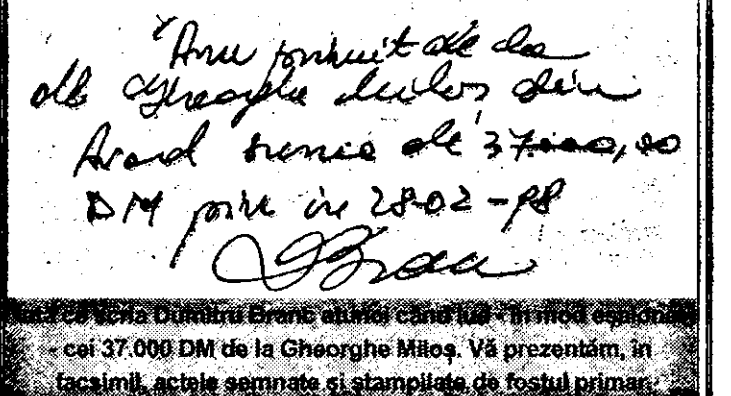 Am primit de la
dl Gheorghe Miloș din
Arad suma de 37.000,00
DM pînă in 28-02-98
DBranc
Iată ce scria Dumitru Branc atunci când lua - în mod
- cei 37.000 DM de la Gheorghe Miloș. Vă prezentăm, în
facsimil, actele semnate și stampilate de fostul primar.